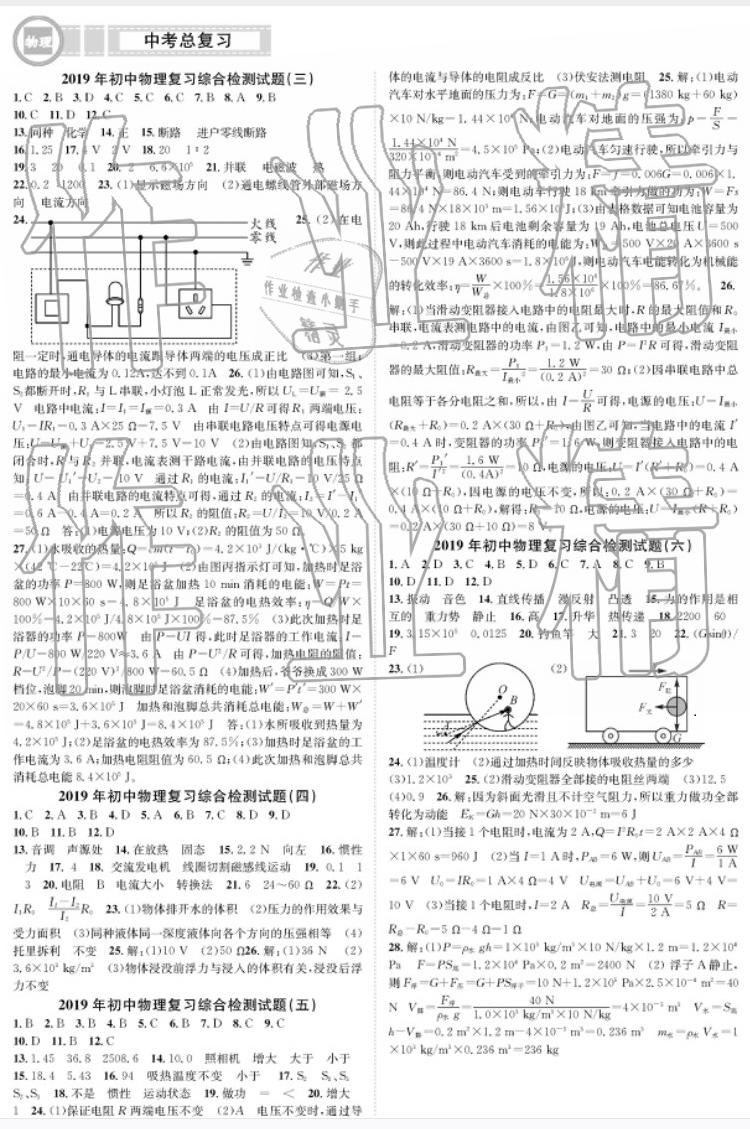 物理
中考总复习
2019 年初中物理复习综合检测试题(三)
1.C 2.B 3.D 4.C 5.C 6.C 7.B 8.A 9.B
10.C 11.D 12.C
13.同种 化学 14.正 15.断路 进户零线断路
16.1.25 17.4 V 2 V 18.20 1∶2
19.3 20 0.1 20.2 6.6×10⁵ 21.并联 电磁波 热
22.0.2 1200 23.(1)显示磁场方向 (2)通电螺线管外部磁场方
向 电流方向
24.
火线
零线
25.(2)在电
阻一定时,通电导体的电流跟导体两端的电压成正比 (3)第一组;
电路的最小电流为 0.12A,达不到 0.1A 26.(1)由电路图可知,S₁、
S₂都断开时,R₁ 与 L 串联,小灯泡 L 正常发光,所以 U_L=U额=2.5
V 电路中电流:I=I₁=I额=0.3 A 由 I=U/R 可得,R₁ 两端电压:
U₁=IR₁=0.3 A×25 Ω=7.5 V 由串联电路电压特点可得电源电
压:U=U额+U₁=2.5 V+7.5 V=10 V (2)由电路图知,S₁、S₂ 都
闭合时,R₁与 R₂ 并联,电流表测干路电流,由并联电路的电压特点
知:U=U₁′=U₂=10 V 通过 R₁ 的电流:I₁′=U/R₁=10 V/25 Ω
=0.4 A 由并联电路的电流特点可得,通过 R₂ 的电流:I₂=I′-I₁
=0.6 A-0.4 A=0.2 A 所以 R₂ 的阻值:R₂=U/I₂=10 V/0.2 A
=50 Ω 答:(1)电源电压为 10 V;(2)R₂ 的阻值为 50 Ω
27.(1)水吸收的热量:Q=cm(t-t₀)=4.2×10³ J/(kg·℃)×5 kg
×(42℃-22℃)=4.2×10⁵ J (2)由图丙指示灯可知,加热时足浴
盆的功率 P=800 W,则足浴盆加热 10 min 消耗的电能:W=Pt=
800 W×10×60 s=4.8×10⁵ J 足浴盆的电热效率:η=Q/W×
100%=4.2×10⁵ J/4.8×10⁵ J×100%=87.5% (3)此次加热时足
浴器的功率 P=800W 由 P=UI 得,此时足浴器的工作电流:I=
P/U=800 W/220 V≈3.6 A 由 P=U²/R 可得,加热电阻的阻值:
R=U²/P=(220 V)²/800 W=60.5 Ω (4)加热后,爷爷换成 300 W
档位,泡脚20 min,则泡脚时足浴盆消耗的电能:W′=P′t′=300 W×
20×60 s=3.6×10⁵ J 加热和泡脚总共消耗总电能:W总=W+W′
=4.8×10⁵ J+3.6×10⁵ J=8.4×10⁵ J 答:(1)本所吸收到热量为
4.2×10⁵ J;(2)足浴盆的电热效率为 87.5%;(3)加热时足浴盆的工
作电流为 3.6 A;加热电阻阻值为 60.5 Ω;(4)此次加热和泡脚总共
消耗总电能 8.4×10⁵ J。
2019 年初中物理复习综合检测试题(四)
1.C 2.A 3.B 4.D 5.A 6.B 7.C 8.D 9.D
10.B 11.B 12.D
13.音调 声源处 14.在放热 固态 15.2.2 N 向左 16.惯性
力 17.4 18.交流发电机 线圈切割磁感线运动 19.0.1 1
3 20.电阻 B 电流大小 转换法 21.6 24~60 Ω 22.(2)
I₁R₀ (I₁-I₂)/I₂ R₀ 23.(1)物体排开水的体积 (2)压力的作用效果与
受力面积 (3)同种液体同一深度液体向各个方向的压强相等 (4)
托里拆利 不变 25.解:(1)10 V (2)50 Ω26.解:(1)36 N (2)
3.6×10³ kg/m³ (3)物体浸没前浮力与浸入的体积有关,浸没后浮
力不变
2019 年初中物理复习综合检测试题(五)
1.B 2.B 3.B 4.B 5.C 6.B 7.D 8.C 9.C
10.D 11.B 12.C
13.1.45 36.8 2508.6 14.10.0 照相机 增大 大于 小于
15.18.4 5.43 16.94 吸热温度不变 小于 17.S₂ S₁、S₃
S₂、S₃ 18.不是 惯性 运动状态 19.做功 = < 20.增大
1 24.(1)保证电阻 R 两端电压不变 (2)A 电压不变时,通过导
体的电流与导体的电阻成反比 (3)伏安法测电阻 25.解:(1)电动
汽车对水平地面的压力为:F=G=(m₁+m₂)g=(1380 kg+60 kg)
×10 N/kg=1.44×10⁴ N,电动汽车对地面的压强为:p=F/S=
1.44×10⁴ N/320×10⁻⁴ m²=4.5×10⁵ Pa;(2)电动汽车匀速行驶,所以牵引力与
阻力平衡,则电动汽车受到的牵引力为:F=f=0.006G=0.006×1.
44×10⁴ N=86.4 N;则电动车行驶 18 km 牵引力做的功为:W=Fs
=86.4 N×18×10³ m=1.56×10⁶ J;(3)由表格数据可知电池容量为
20 Ah,行驶 18 km后电池剩余容量为 19 Ah,电池总电压U=500
V,则此过程中电动汽车消耗的电能为:W总=500 V×20 A×3600 s
-500 V×19 A×3600 s=1.8×10⁶ J,则电动汽车电能转化为机械能
的转化效率:η=W/W总×100%=1.56×10⁶/1.8×10⁶×100%=86.67%。 26.
解:(1)当滑动变阻器接入电路中的电阻最大时,R 的最大阻值和 R₀
串联,电流表测电路中的电流,由图乙可知,电路中的最小电流 I最小
=0.2 A,滑动变阻器的功率 P₁=1.2 W,由 P=I²R 可得,滑动变阻
器的最大阻值:R最大=P₁/I最小²=1.2 W/(0.2 A)²=30 Ω;(2)因串联电路中总
电阻等于各分电阻之和,所以,由 I=U/R 可得,电源的电压:U=I最小
(R最大+R₀)=0.2 A×(30 Ω+R₀),由图乙可知,当电路中的电流 I′
=0.4 A 时,变阻器的功率 P₁′=1.6 W,则变阻器接入电路中的电
阻:R′=P₁′/I′²=1.6 W/(0.4A)²=10 Ω,电源的电压:U=I′(R′+R₀)=0.4 A
×(10 Ω+R₀),因电源的电压不变,所以:0.2 A×(30 Ω+R₀)=
0.4 A×(10 Ω+R₀),解得:R₀=10 Ω,电源的电压:U=I最小(R+R₀)
=0.2 A×(30 Ω+10 Ω)=8 V。
2019 年初中物理复习综合检测试题(六)
1.A 2.D 3.C 4.B 5.D 6.C 7.A 8.C 9.B
10.D 11.D 12.D
13.振动 音色 14.直线传播 漫反射 凸透 15.力的作用是相
互的 重力势 静止 16.高 17.升华 热传递 18.2200 60
19.3.15×10⁵ 0.0125 20.钓鱼竿 大 21.3 20 22.(Gsinθ)/
F
23.(1)
O
B
A
(2)
F拉
F支
G
24.(1)温度计 (2)通过加热时间反映物体吸收热量的多少
(3)1.2×10³ 25.(2)滑动变阻器全部接的电阻丝两端 (3)12.5
(4)0.9 26.解:因为斜面光滑且不计空气阻力,所以重力做功全部
转化为动能 E_K=Gh=20 N×30×10⁻² m=6 J
27.解:(1)当接 1 个电阻时,电流为 2 A,Q=I²R₀t=2 A×2 A×4 Ω
×1×60 s=960 J (2)当 I=1 A 时,P_AB=6 W,则U_AB=P_AB/I=6 W/1 A
=6 V U₀=IR₀=1 A×4 Ω=4 V U电源=U_AB+U₀=6 V+4 V=
10 V (3)当接 1 个电阻时,I=2 A R总=U电源/I=10 V/2 A=5 Ω R=
R总-R₀=5 Ω-4 Ω=1 Ω
28.解:(1)P=ρ水 gh=1×10³ kg/m³×10 N/kg×1.2 m=1.2×10⁴
Pa F=PS底=1.2×10⁴ Pa×0.2 m²=2400 N (2) 浮子 A 静止,
则 F浮=G+F压=G+PS浮子=10 N+1.2×10⁵ Pa×2.5×10⁻⁴ m²=40
N V排=F浮/ρ水 g=40 N/1.0×10³ kg/m³×10 N/kg=4×10⁻³ m³ V水=S底
h-V排=0.2 m²×1.2 m-4×10⁻³ m³=0.236 m³ m水=ρ水 V水=1
×10³ kg/m³×0.236 m³=236 kg
作业检查小助手
精灵
作业精灵